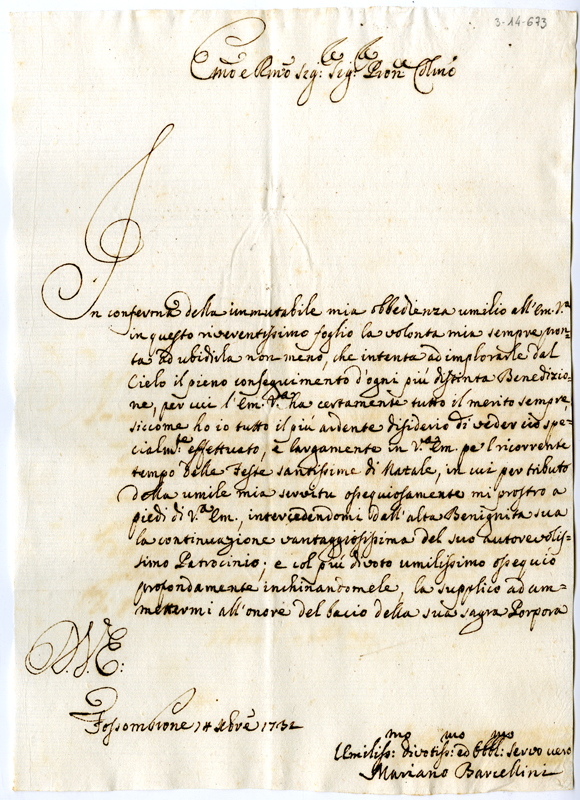 3-14-673
Emo e Rmo Sig:re Sig:re Pron Colmo
In conferma della immutabile mia obbedienza umilio all'Em. Va
in questo riverentissimo foglio la volonta mia sempre pron=
ta ad ubidirla non meno, che intenta ad implorarle dal
Cielo il pieno conseguimento d'ogni più distinta Benedizio=
ne, per cui l'Em. Va ha certamente tutto il merito sempre,
siccome ho io tutto il più ardente disiderio di veder ciò spe=
cialmte effettuato, e largamente in Va Em. pe'l ricorrente
tempo delle Feste santissime di Natale, in cui per tributo
della umile mia servitù ossequiosamente mi prostro a
piedi di Va Em., intercedendomi dall'alta Benignita sua
la continuazione vantaggiosissima del suo autorevolis=
simo Patrocinio; e col più divoto umilissimo ossequio
profondamente inchinandomele, la supplico ad am=
mettermi all'onore del bacio della sua sagra Porpora
D. V. E:
Fossombrone 14 Xbre 1732
Umiliss:mo divotiss:mo ed obbl:mo servo vero
Mariano Barcellini